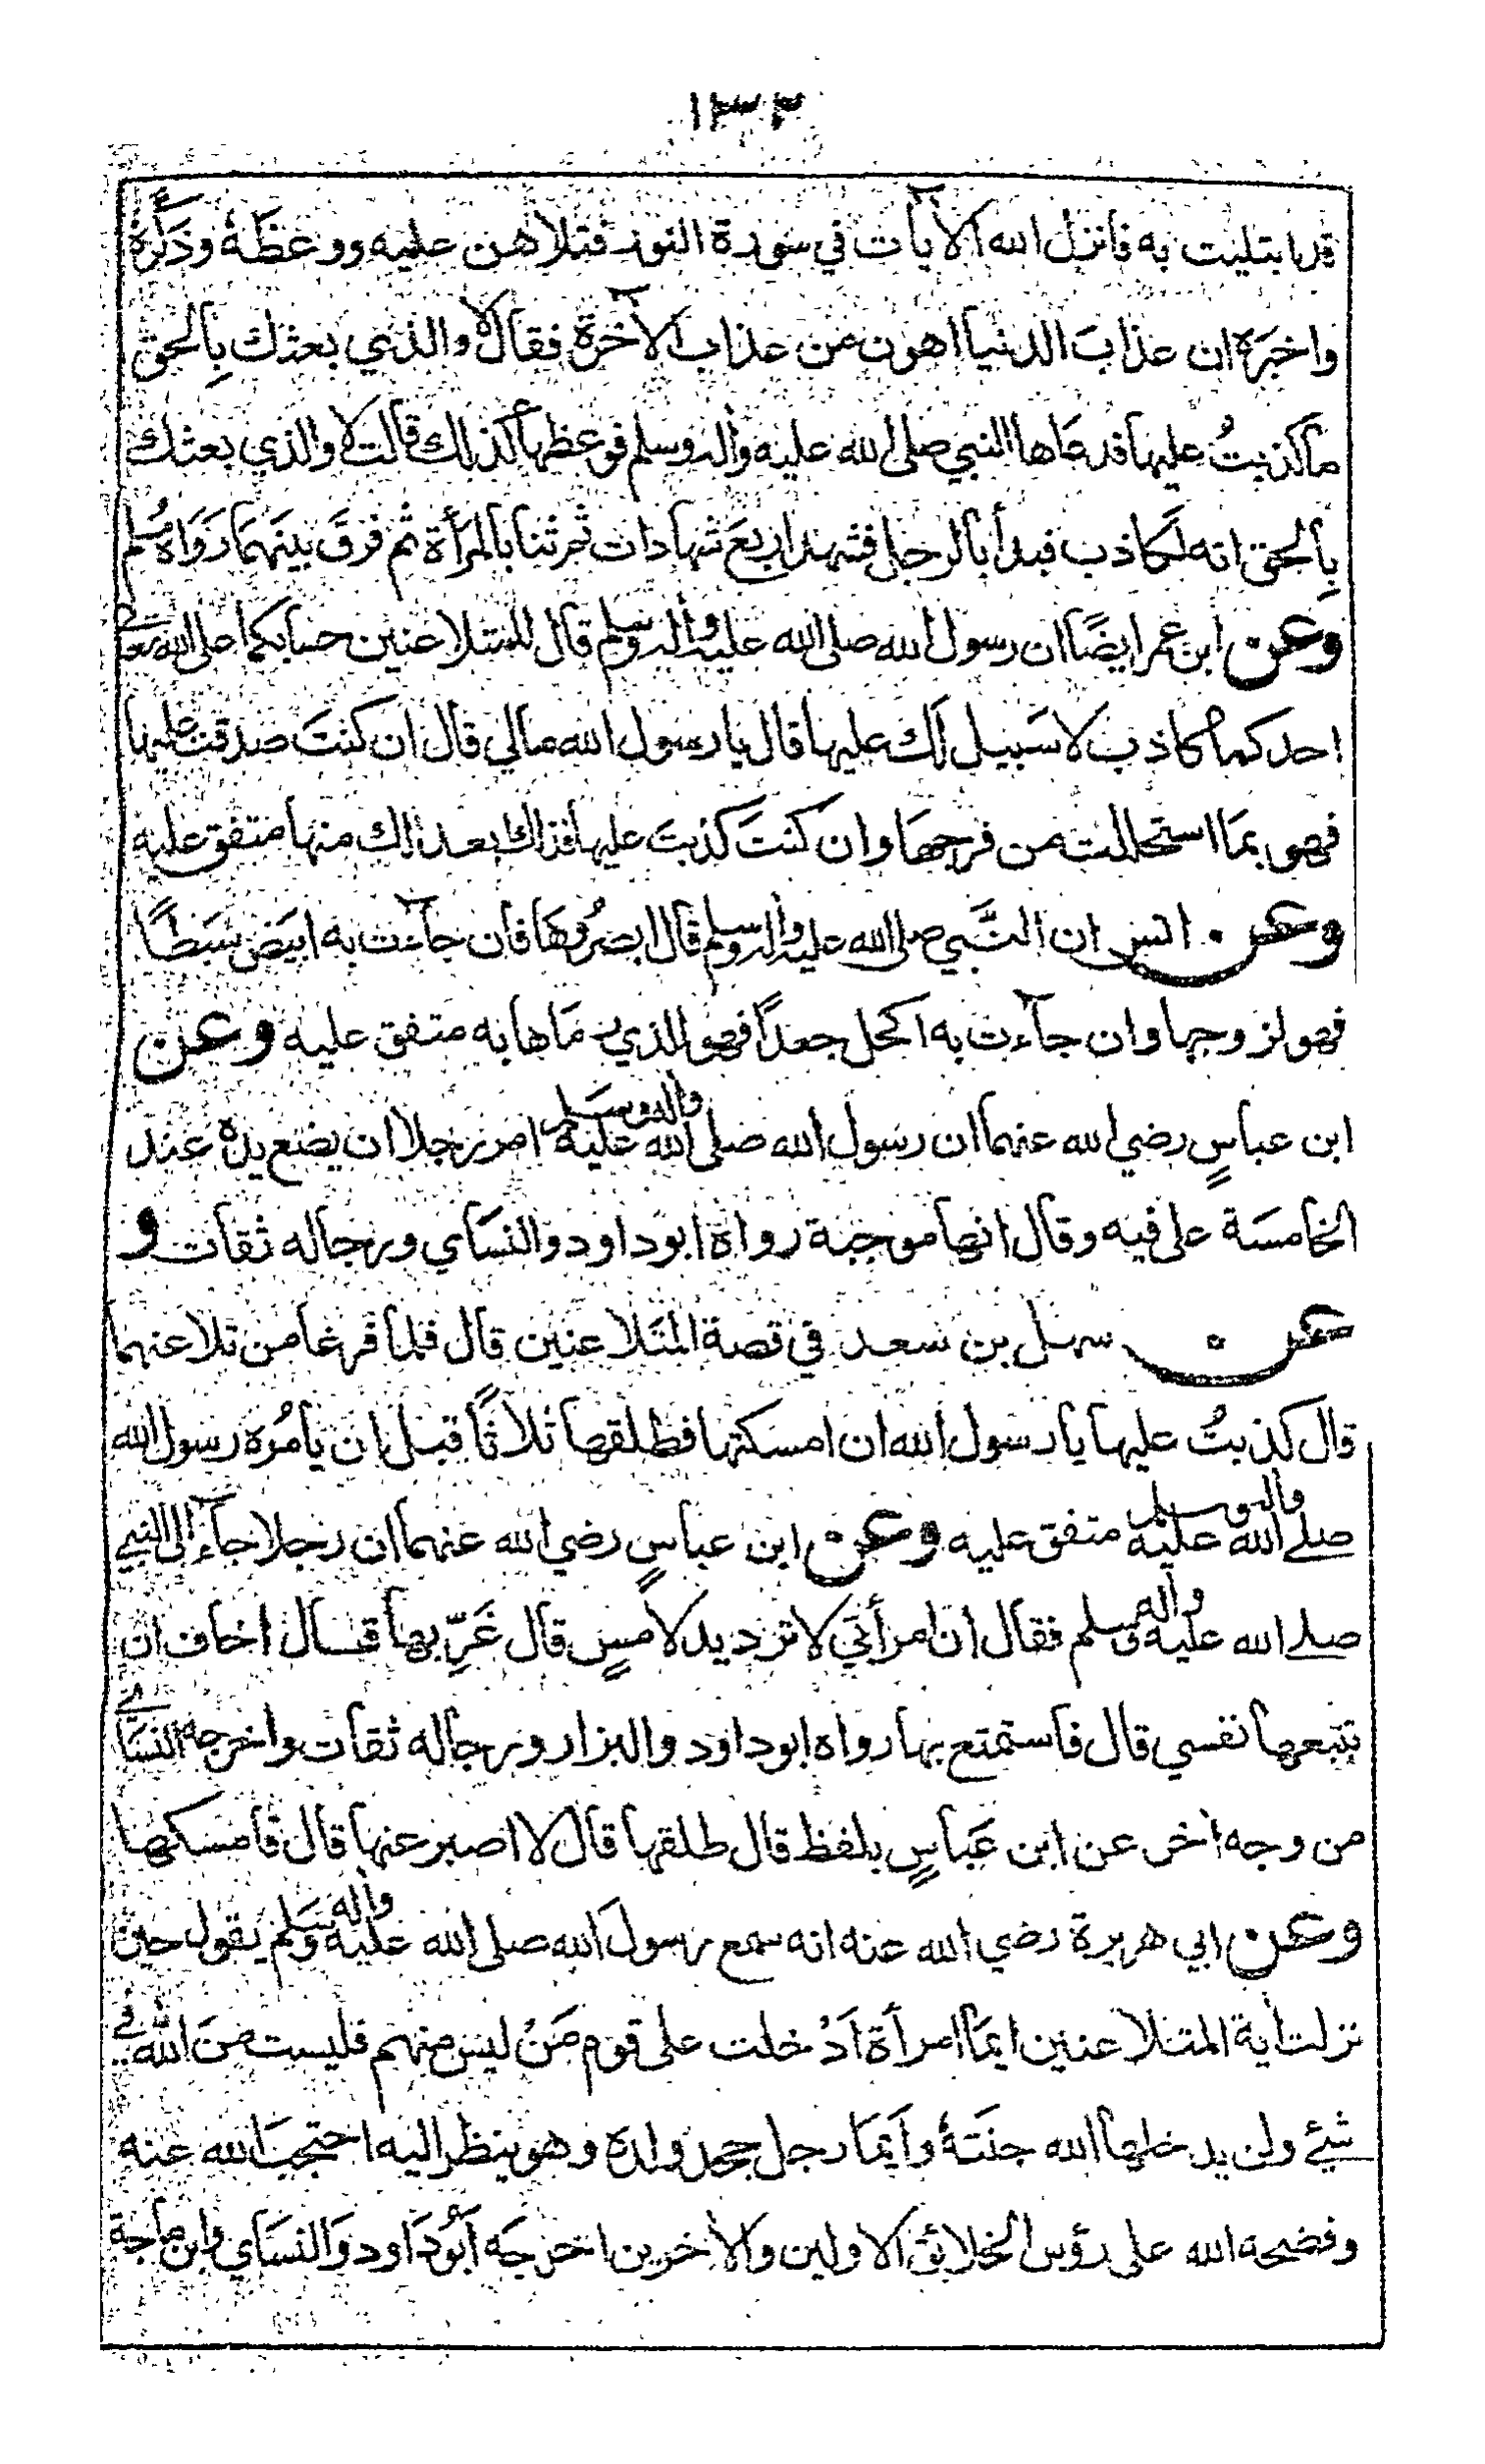 ١٣٢
قدابتليت به فانزل الله الآيات في سورة النور فتلاهن عليه ووعظَهُ وذَكَّرهُ
واخبَرَه ان عذابَ الدنيا اهون من عذاب الآخرة فقال لا والذي بعثك بِالحق
ما كذبتُ عليها فدعاها النبي صلى الله عليه وآله وسلم فوعظها كذلك قالت لا والذي بعثك
بِالحق انه لَكاذب فبدأ بالرجل فشهد اربعَ شهادات ثم ثنا بالمرأة ثم فرقَ بينهمَا رَوَاه مُسلم
وعن ابن عمر ايضًا ان رسول الله صلى الله عليه وآله وسلم قال للمتلاعنين حسابكما على الله تعالى
احدكما كاذب لا سَبيل لَك عليها قال يا رسول الله مالي قال ان كنتَ صدقت عليها
فهو بمَا استحللت من فرجهَا وان كنتَ كذبتَ عليها فذاك بعد لك منها متفق عليه
وعن انس ان النَّبي صلى الله عليه وآله وسلم قال ابصرُوهَا فان جآءت به ابيَض سَبَطًا
فهو لزوجها وان جآءت به اكحل جعدًا فهو للذي رمَاها به متفق عليه وعن
ابن عباسٍ رضي الله عنهما ان رسول الله صلى الله عليه وآله وسلم امر رجلا ان يضع يده عند
الخامسَة على فيه وقال انها موجبة رواه ابوداود والنسَاي ورجاله ثقات و
عن سهل بن سَعد في قصة المتَلاعنين قال فلما فرغا من تلاعنهما
قال كذبتُ عليها يا رسول الله ان امسَكتها فطلقها ثلاثًا قبل ان يامُره رسول الله
صلے الله عليه وآله وسلم متفق عليه وعن ابن عباسٍ رضي الله عنهما ان رجلا جآء الى النبي
صلے الله عليه وآله وسلم فقال ان امرأتي لا ترد يد لامسٍ قال غَرِّبها قال اخاف ان
تتبعها نفسي قال فاستمتع بها رواه ابوداود والبزار ورجاله ثقات واخرجه النسَاي
من وجه اخر عن ابن عَباسٍ بلفظ قال طلقها قال لا اصبر عنها قال فامسكها
وعن ابي هريرة رضي الله عنه انه سمع رسول الله صلى الله عليه وآله وسَلم يقول حين
نزلت اية المتلاعنين ايمَا امرأة اَدْخلت على قوم مَنْ ليس منهم فليست مِنَ الله في
شئے ولن يدخلها الله جنتَهُ وآيمَا رجل جحد ولده وهو ينظر اليه احتجبَ الله عنه
وفضحه الله على رؤس الخلائق الاولين والاخرين اخرجَه اَبُودَاود وَالنسَاي وابن ماجة